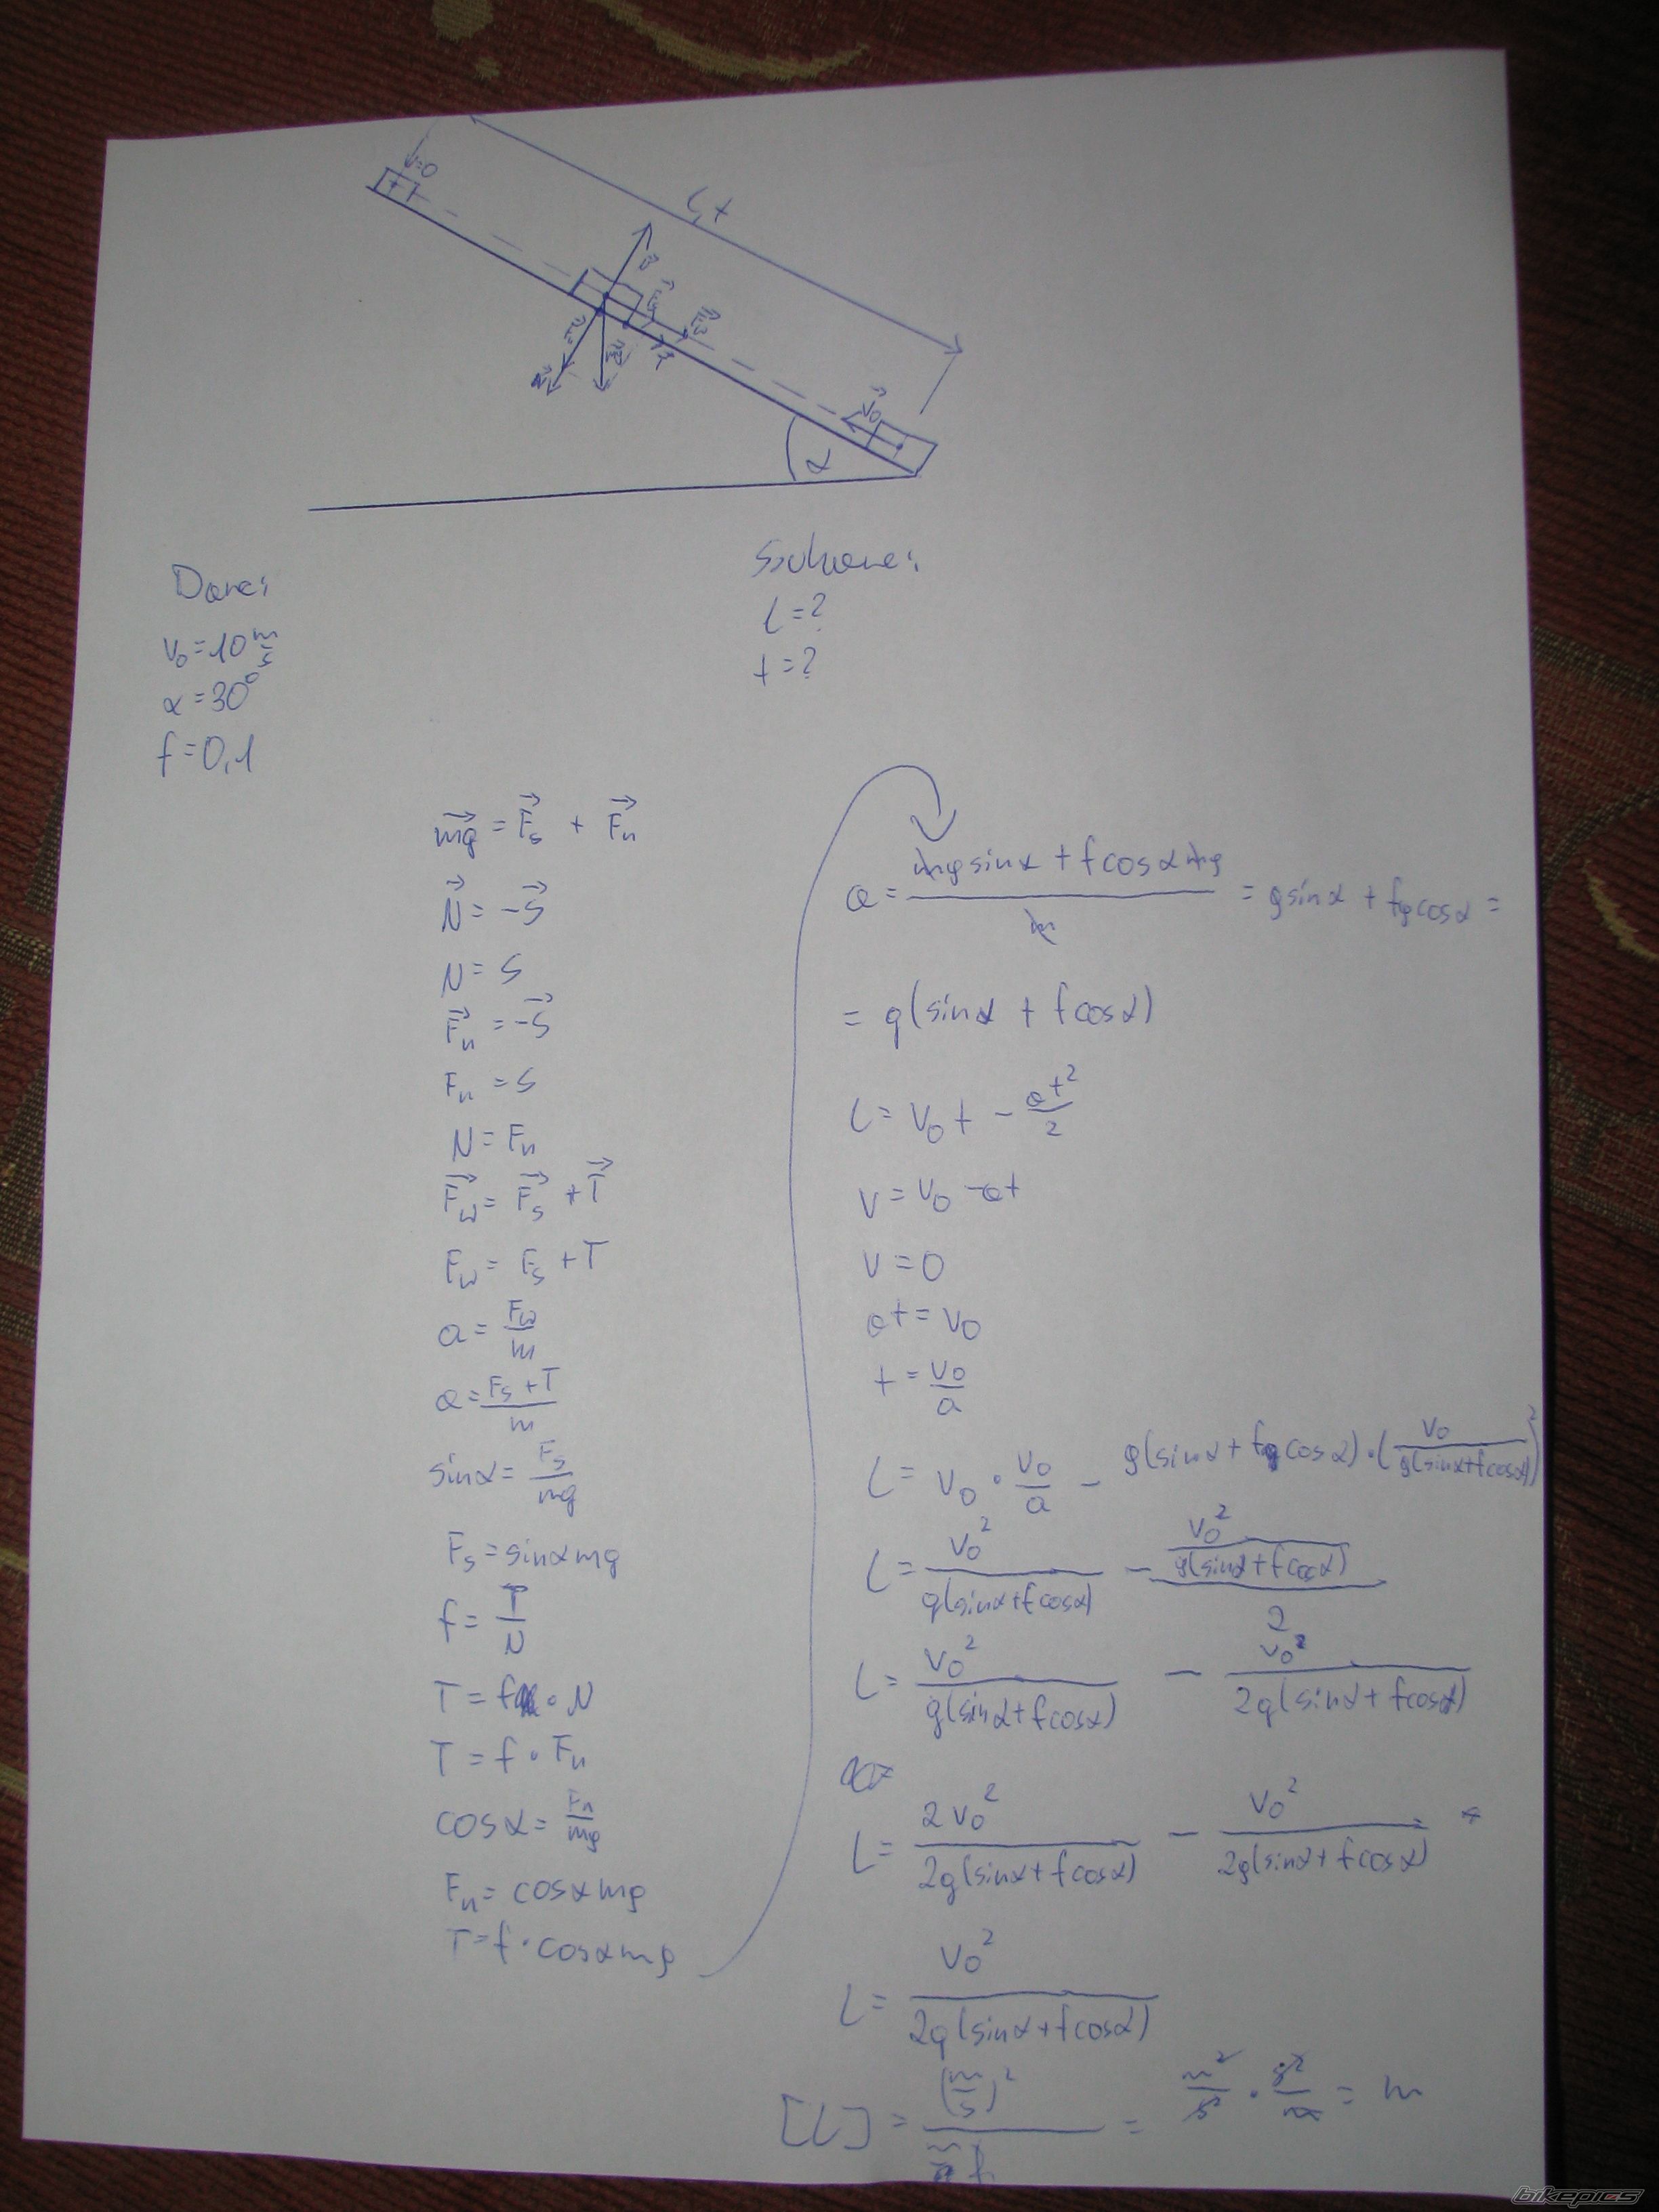 v=0
l, t
v₀
α
Dane:
Szukane:
v₀ = 10 m/s
l = ?
α = 30°
t = ?
f = 0,1
mg = Fs + Fn
N = -S
N = S
Fn = -S
Fn = S
N = Fn
Fw = Fs + T
Fw = Fs + T
a = Fw/m
a = (Fs + T)/m
sinα = Fs/mg
Fs = sinα mg
f = T/N
T = f · N
T = f · Fn
cosα = Fn/mg
Fn = cosα mg
T = f · cosα mg
a = (mg sinα + f cosα mg)/m = g sinα + fg cosα =
= g(sinα + f cosα)
l = v₀t - at²/2
v = v₀ - at
v = 0
at = v₀
t = v₀/a
l = v₀ · v₀/a - g(sinα + f cosα) · (v₀/(g(sinα + f cosα)))²
l = v₀²/(g(sinα + f cosα)) - (v₀²/(g(sinα + f cosα)))/2
l = v₀²/(g(sinα + f cosα)) - v₀²/(2g(sinα + f cosα))
l = 2v₀²/(2g(sinα + f cosα)) - v₀²/(2g(sinα + f cosα))
l = v₀²/(2g(sinα + f cosα))
[l] = (m/s)²/ = m²/s² · s²/m = m
bikepics